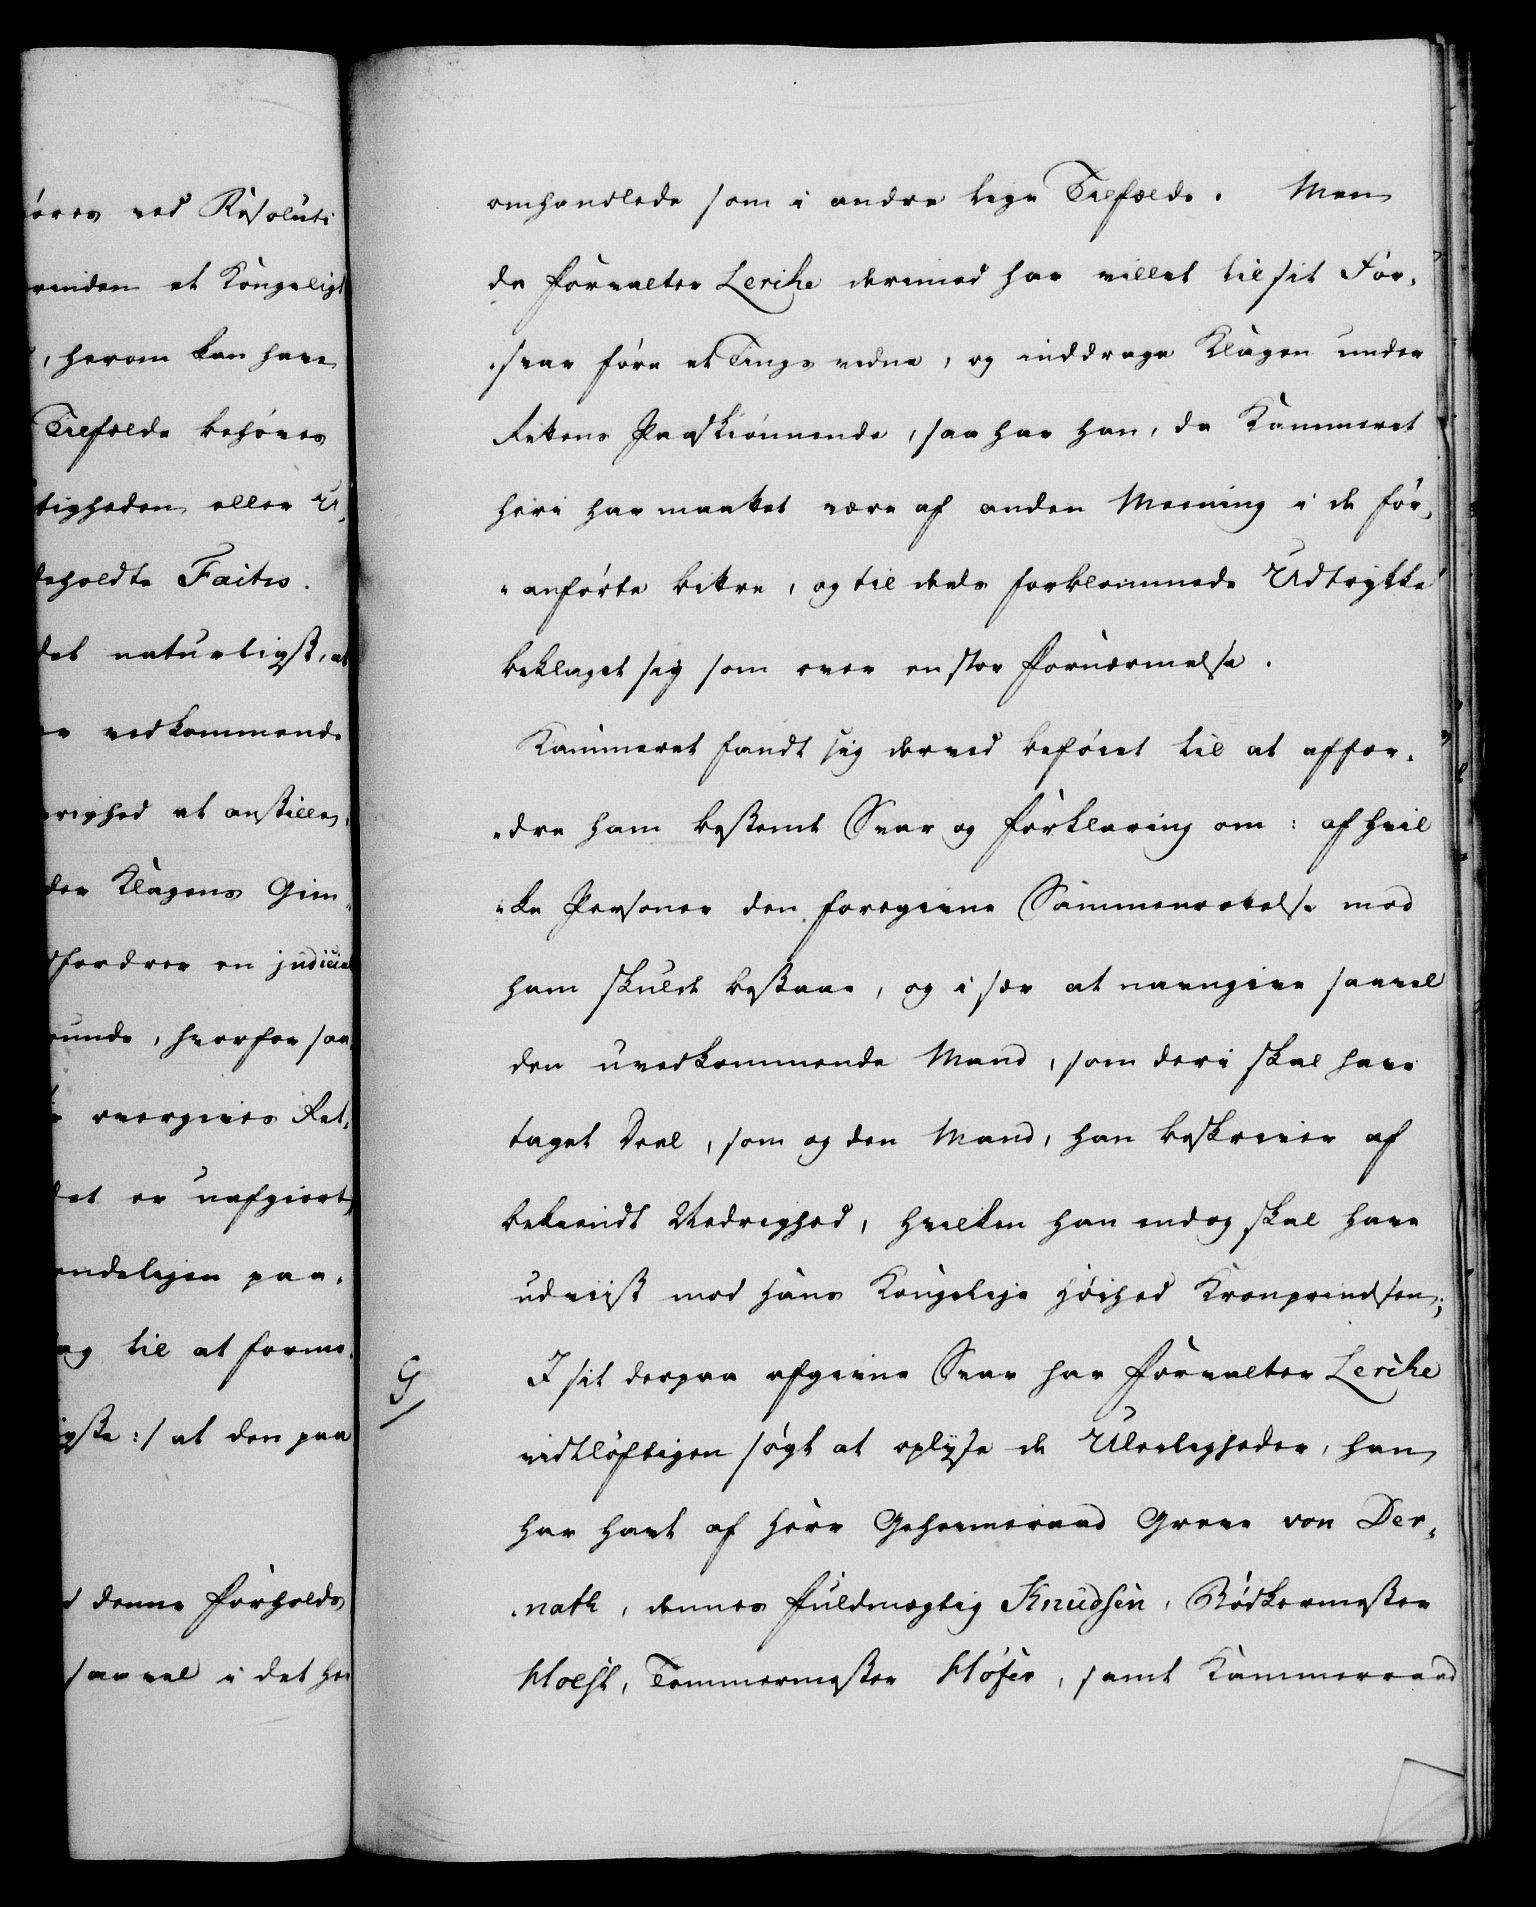 öres ved Resoluti
rinden et Kongeligt
, herom kan have
Tilfælde behöves
tigheden eller U,
deholdte Faites.
det naturligst, at
er vedkommende
vrighed at anstille,
der Klagens Gien„
dfordrer en judiciel
runde, hvorfor saa
overgives Ret„
det er uafgiort,
endeligen paa„
ag til at forme„
igste :/ at den paa
denne Forholds
saavel i det he
omhandlede som i andre lige Tilfælde. Men
da Forvalter Lerche derimod har villet til sit For„
„svar føre et Tings vidne, og inddrage Klagen under
Rettens Paaskiønnende, saa har han, da Kammeret
heri har maattet være af anden Meening i de før„
„anførte bittre, og til deels forblommede Udtrykke
beklaget sig som over en stor Fornærmelse.
Kammeret fandt sig derved beføiet til at affor„
„dre ham bestemt Svar og Forklaring om: af hvil
„ke Personer den foregivne Sammenrottelse mod
ham skulde bestaae, og i sær at navngive saavel
den uvedkommende Mand, som deri skal have
taget Deel, som og den Mand, han beskriver af
bekiendt Nedrighed, hvilken han endog skal have
udviist mod Hans Kongelige Høihed Kronprindsen;
G/
I sit derpaa afgivne Svar har Forvalter Lerche
vidtløftigen søgt at oplyse de Uleiligheder, han
har havt af Herr Geheimeraad Greve von Der„
„nath, dennes Fuldmægtig Knudsen, Bødkermester
Holst, Tømmermester Høyer, samt Kammerraad